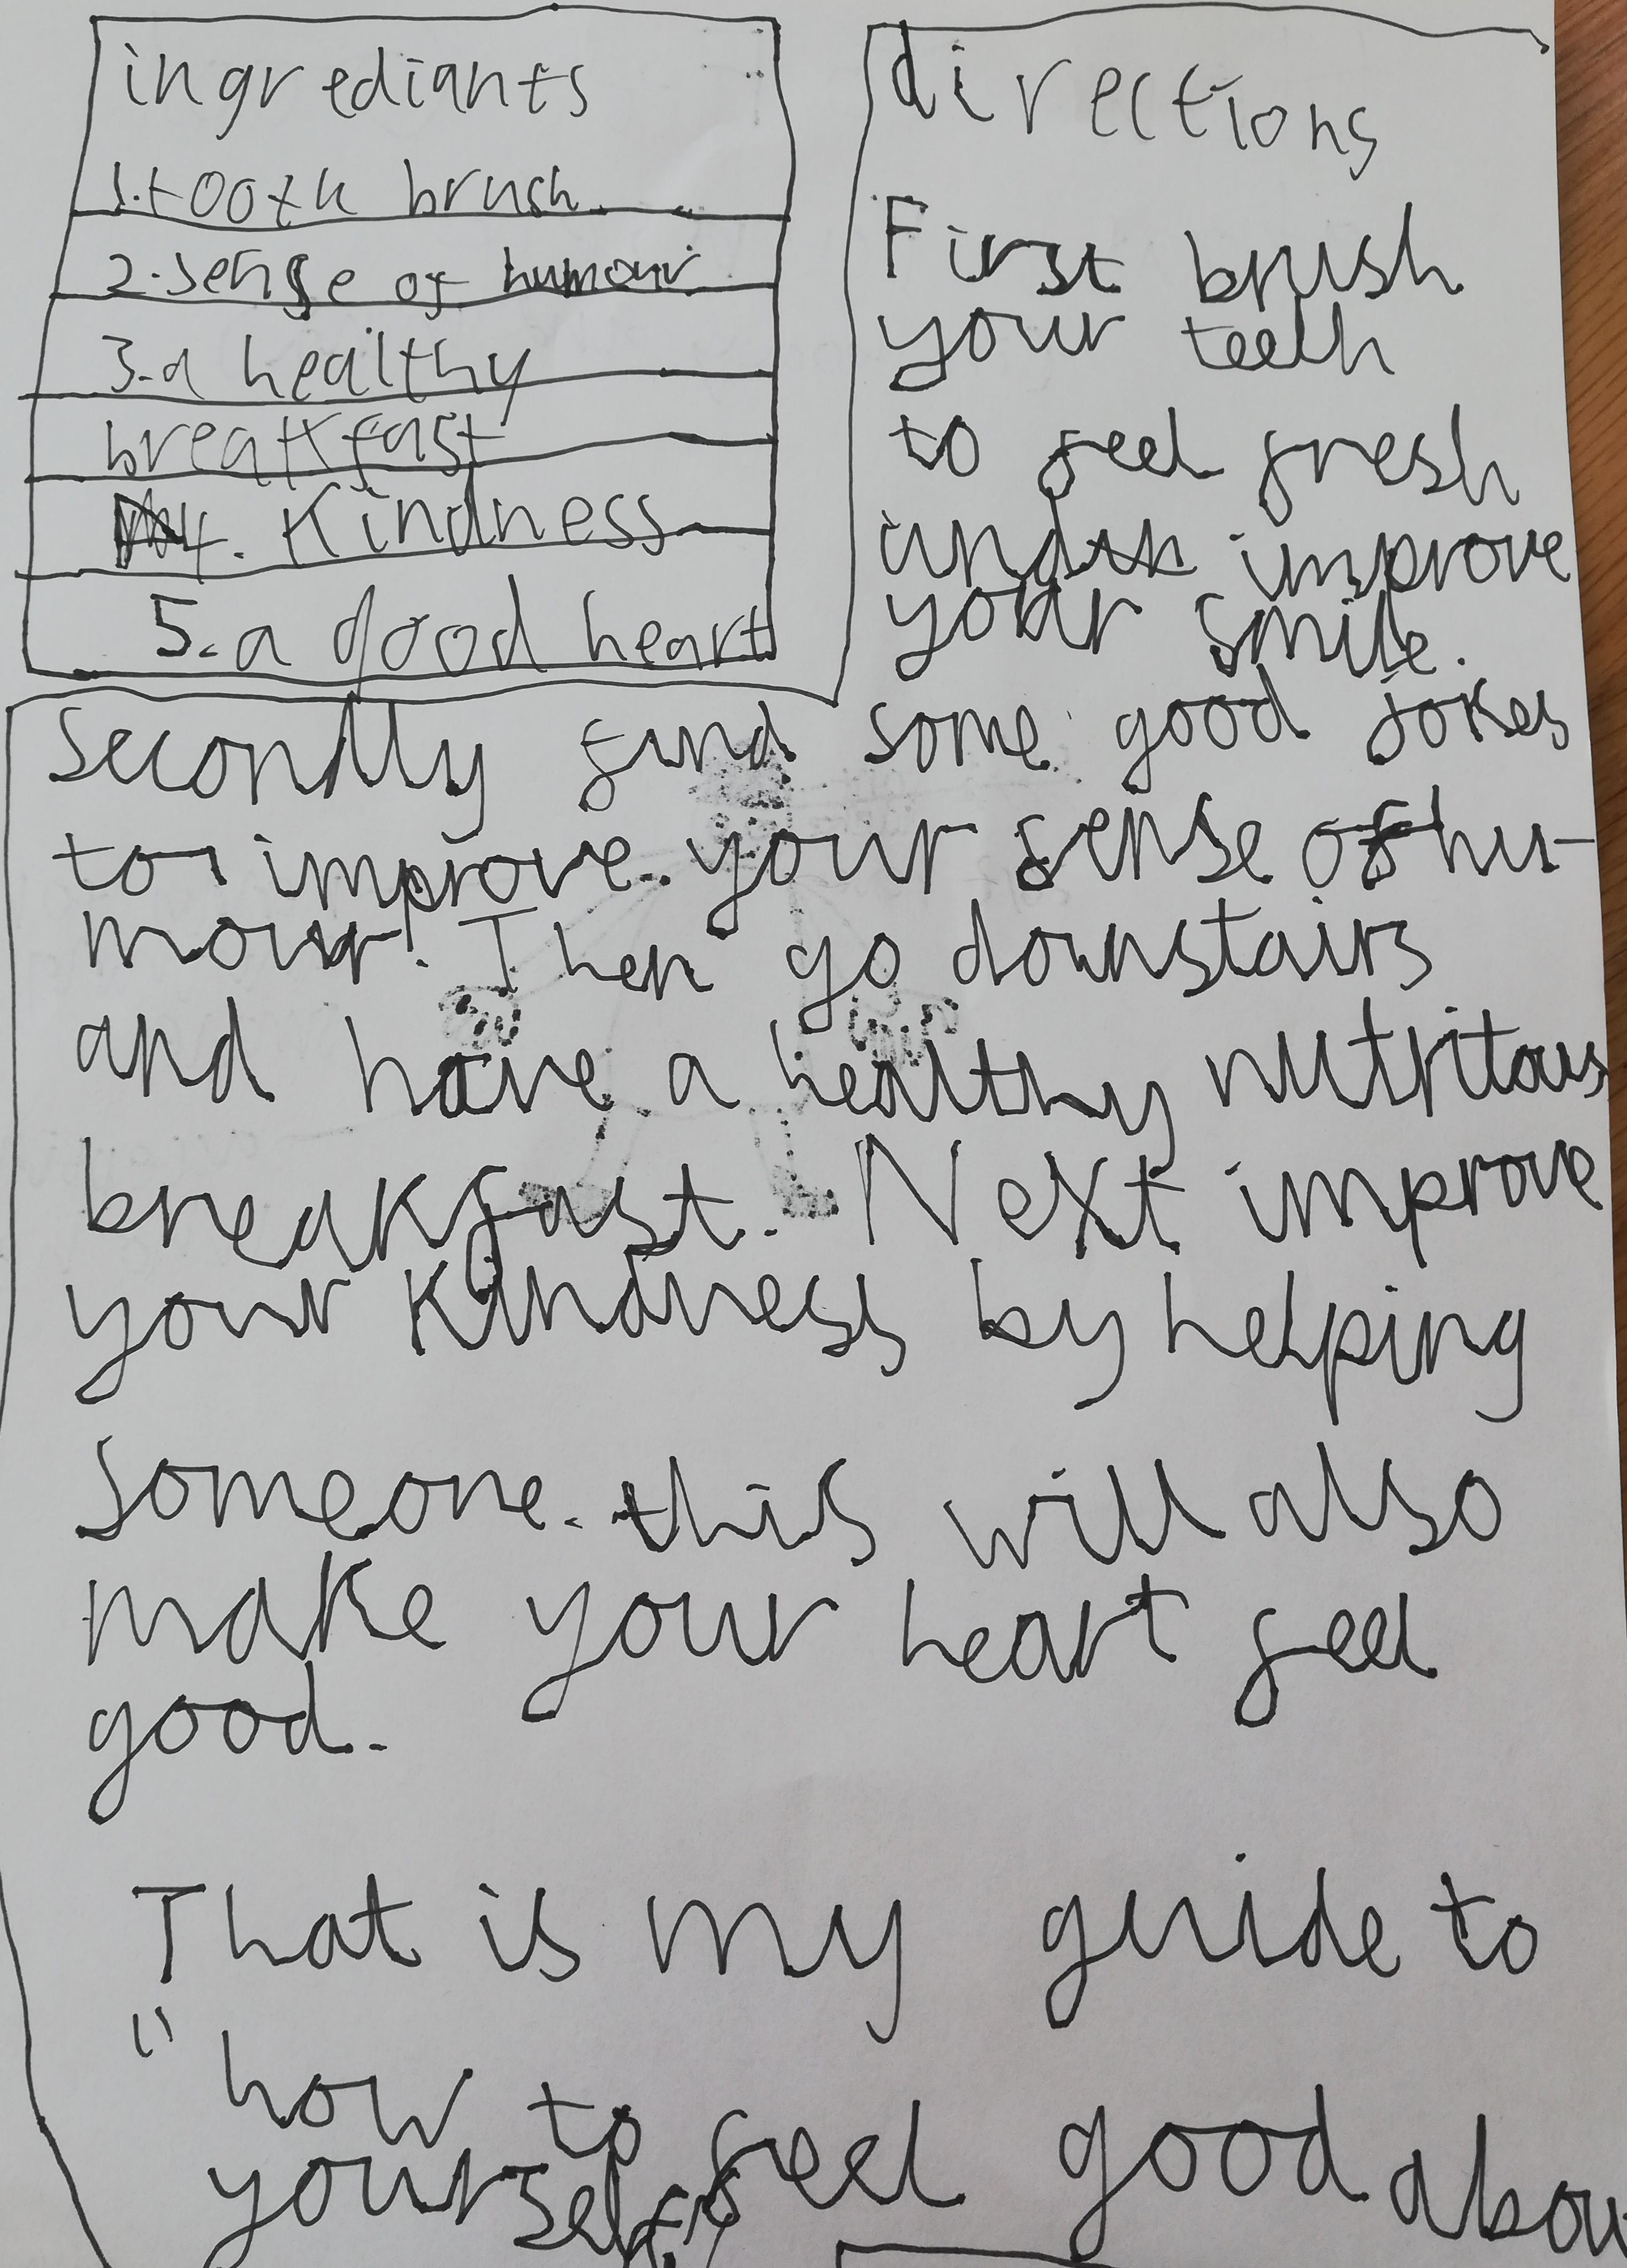 ingrediants
1. tooth brush
2. sense of humour
3. a healthy
breakfast
4. Kindness
5. a good heart
directions
First brush
your teeth
to feel fresh
improve
your smile.
Secondly find some good jokes
to improve your sense of hu-
mour! Then go downstairs
and have a healthy nutritous
breakfast. Next improve
your Kindness by helping
someone. this will also
make your heart feel
good.
That is my guide to
"how to feel good abou
yourself"